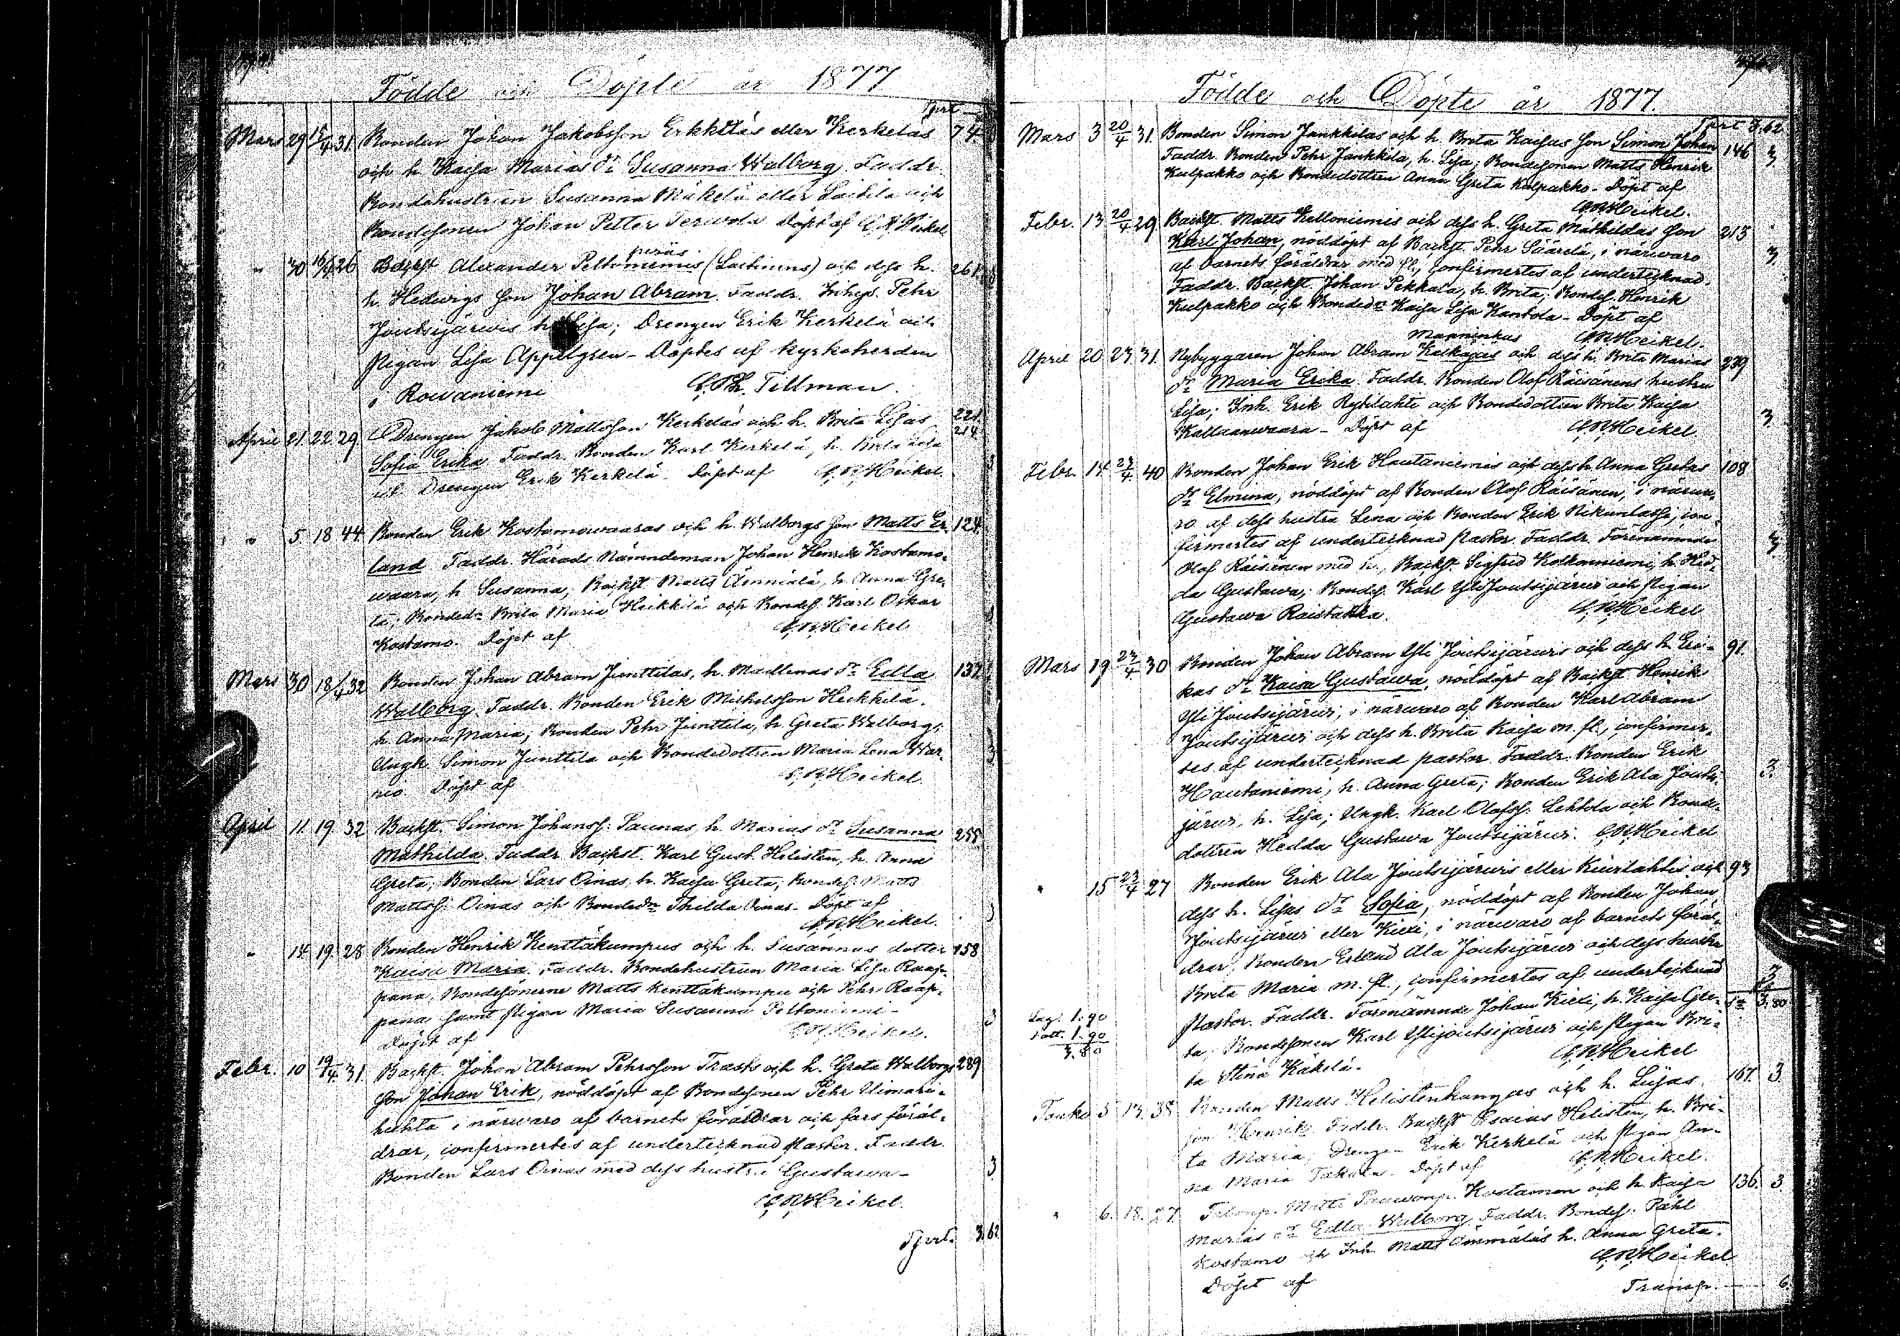 Födde och Döpte år 1877
Tprt
Mars 29 15/4 31 Bonden Johan Jakobsson Erkkiläs eller Kerkeläs 74
och h. Kaisa Marias dr Susanna Walborg. Faddr.
Bondehustrun Susanna Mäkelä eller och
Bondesonen Johan Petter Döpt af C. R. Heikel
peräs
" 30 16/4 26 Backst Alexander Peltoniemis (Lachinens) och dess h. 261
h. Hedwigs son Johan Abram. Faddr. Inhys. Pehr
Joutsijärwis h. Lisa; Drengen Erik Kerkelä och
Pigan Lisa Appelgren - Döptes af kyrkoherden
i Rowaniemi Tillman.
221
April 21 22 29 Drengen Jakob Mattsson Kerkeläs och h. Brita Lisas 214
Sofia Erika. Faddr. Bonden Karl Kerkelä, h. Brita Lisa
och Drengen Erik Kerkelä. Döpt af C. R. Heikel.
" 5 18 44 Bonden Erik Kostamowaaras och h. Walborgs son Matts Er- 124
land. Faddr. Härads Nämndeman Johan Henrik Kostamo-
waara, h. Susanna; Backst. Matts Ämmälä, h. Anna Gre-
ta; Bondedr Brita Maria Heikkilä och Bondes. Karl Oskar
Kostamo. Döpt af C. R. Heikel
Mars 30 18/4 32 Bonden Johan Abram Junttilas, h. Madlenas dr Edla 132
Walborg. Faddr. Bonden Erik Michelsson Heikkilä,
h. Anna Maria; Bonden Pehr Junttila, h. Greta Walborg;
Ungk. Simon Junttila och Bondedottren Maria Lena War-
rio. Döpt af C. R. Heikel. 3
April 11 19 32 Backst. Simon Johanss. Paunas, h. Marias dr Susanna 255
Mathilda. Faddr. Backst. Karl Gust. Helisten, h. Anna
Greta; Bonden Lars Oinas, h. Kaisa Greta; Bondes. Matts
Mattss. Oinas och Bondedr Thilda Oinas. Döpt af
C. R. Heikel. 3
" 14 19 28 Bonden Henrik Kenttäkumpus och h. Susannas dotter 158
Kaisa Maria. Faddr. Bondehustrun Maria Lisa Raap-
pana, Bondesönerne Matts Kenttäkumpu och Pehr Raap-
pana samt Pigan Maria Susanna Peltoniemi - 3
Döpt af C. R. Heikel.
Febr. 10 19/4 31 Backst. Johan Abram Pehrsson Trasks och h. Greta Walborgs 289
son Johan Erik, nöddöpt af Bondesonen Pehr Ulimari-
huhta i närwaro af barnets föräldrar och fars föräl-
drar, confirmertes af undertecknad Pastor. Faddr.
Bonden Lars Oinas med dess hustru Gustawa - 3
C. R. Heikel.
Tprt. 3,62
Födde och Döpte år 1877.
Tprt 3,62
Mars 3 20/4 31. Bonden Simon Jankkilas och h. Brita Kaisas son Simon Johan 146
Faddr. Bonden Pehr Jankkila, h. Lisa; Bondesonen Matts Henrik 3
Kulpakko och Bondedottren Anna Greta Kulpakko - Döpt af
C. R. Heikel.
Febr. 13 20/4 29 Backst. Matts Kalloniemis och dess h. Greta Mathildas son 213
Karl Johan, nöddöpt af Backst. Pehr Säärelä, i närwaro
af barnets föräldrar med fl., confirmertes af undertecknad. 3
Faddr. Backst. Johan Pekkala, h. Brita; Bondes. Henrik
Kulpakko och Bondedr Kaisa Lisa Kantola - Döpt af
Manninkus C. R. Heikel.
April 20 23 31. Nybyggaren Johan Abram och dess h. Brita Marias 239
dr Maria Erika. Faddr. Bonden Olof Räisänens hustru
Lisa; Inh. Erik Rytilahti och Bondedottren Brita Kaisa
Kallaanwaara - Döpt af C. R. Heikel. 3
Febr. 14 23/4 40 Bonden Johan Erik Hautaniemis och dess h. Anna Gretas 108
dr Elmina, nöddöpt af Bonden Olof Räisänen, i närwa-
ro af dess hustru Lena och Bonden Erik Nikunlassi, con-
firmertes af undertecknad Pastor. Faddr. Förenämnde 3
Olof Räisänen med h., Backst Sigfrid Kotkanniemi, h. Hed-
da Gustawa; Bondes. Karl Yli Joutsijärwi och Pigan
Gustawa Raistakka. C. R. Heikel
Mars 19 23/4 30 Bonden Johan Abram Yli Joutsijärwis och dess h. Eri- 91
kas dr Kaisa Gustawa, nöddöpt af Backst Henrik
Yli Joutsijärwi, i närwaro af Bonden Karl Abram
Joutsijärwi och dess h. Brita Kaisa m. fl., confirmer-
tes af undertecknad pastor. Faddr. Bonden Erik
Hautaniemi, h. Anna Greta; Bonden Erik Ala Joutsi- 3
järwi, h. Lisa; Ungk. Karl Olofss. Lehtola och Bonde-
dottren Hedda Gustawa Joutsijärwi. C. R. Heikel
" 15 23/4 27 Bonden Erik Ala Joutsijärwis eller och 93
dess h. Lisas dr Sofia, nöddöpt af Bonden Johan
Joutsijärwi eller Kieri, i närwaro af barnets föräl-
drar, Bonden Erland Ala Joutsijärwi och dess hustru
Brita Maria m. fl., confirmertes af undertecknad 3
Pastor. Faddr. Förenämnde Johan Kieri, h. Kaisa Gre- 3,80
ta, Bondesonen Karl Ylijoutsijärwi och Pigan Bri-
ta Stina Käkelä. C. R. Heikel
1.90
1.90
3.80
5 13. 38 Bonden Matts Helistenkangas och h. Lisas 167. 3
son Henrik. Faddr. Backst Esaias Helisten, h. Bri-
ta Maria; Drengen Erik Kerkelä och Pigan An-
na Maria Takala. Döpt af C. R. Heikel.
" 6. 18. 27 Matts Kostamon och h. Kaisa 136. 3
Marias dr Edla Walborg. Faddr. Bondes. Pähl
Kostamo och Inh. Matts Ämmäläs h. Anna Greta.
Döpt af C. R. Heikel
Transp. 6